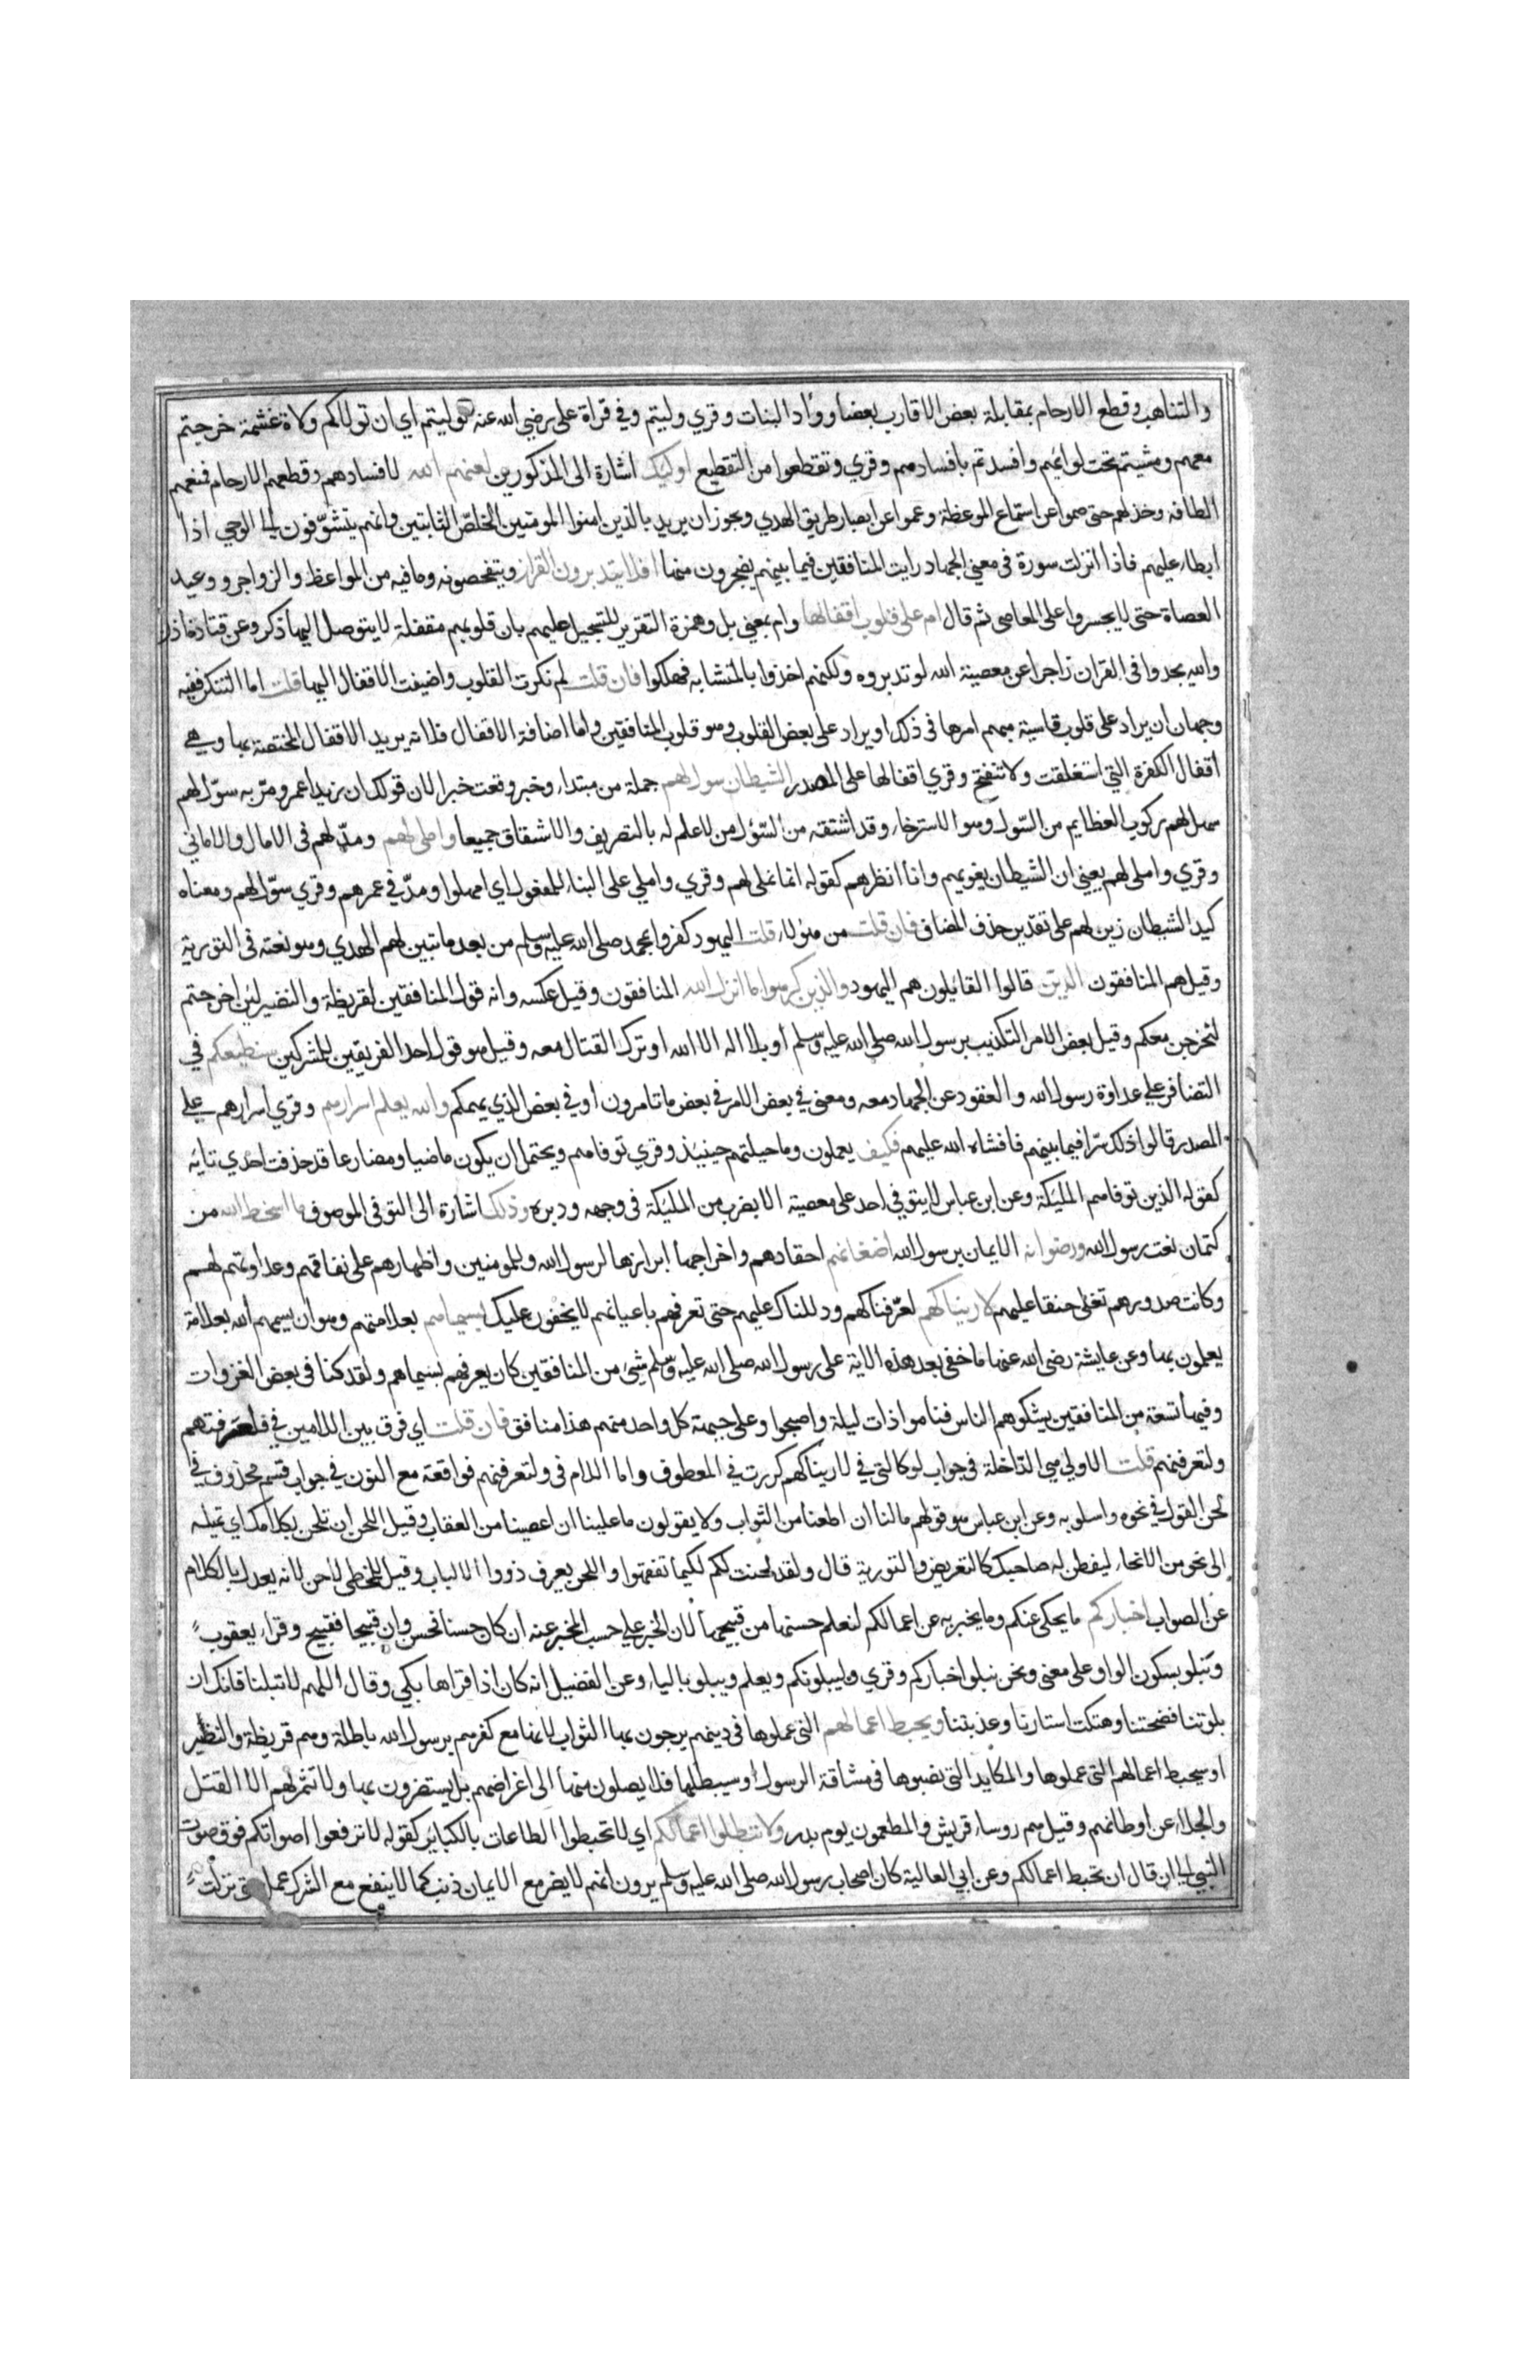 والتناهب وقطع الارحام بمقابلة بعض الاقارب بعضا وواد البنات وقري وليتم وفي قراة على رضي الله عنه توليتم اي ان تولاكم ولاة غشمة خرجتم
معهم ومشيتم تحت لوائهم وافسدتم بافسادهم وقري وتقطعوا من التقطيع اوليك اشارة الى المذكورين لعنهم الله لافسادهم وقطعهم الارحام فمنعهم
الطافه وخذلهم حتى صموا عن استماع الموعظة وعموا عن ابصار طريق الهدي ويجوز ان يريد بالذين امنوا المومنين الخلص الثابتين وانهم يتشوفون الى الوحي اذا
ابطاء عليهم فاذا انزلت سورة في معنى الجهاد رايت المنافقين فيما بينهم يضجرون منها افلا يتدبرون القران ويتفحصونه وما فيه من المواعظ والزواجر ووعيد
العصاة حتى لا يجسروا على المعاصي ثم قال ام على قلوب اقفالها وام بمعنى بل وهمزة التقرير للتسجيل عليهم بان قلوبهم مقفلة لا يتوصل اليها ذكر وعن قتادة اذا
والله يجدوا في القران زاجرا عن معصية الله لو تدبروه ولكنهم اخذوا بالمتشابه فهلكوا فان قلت لم نكرت القلوب واضيفت الاقفال اليها قلت اما التنكر ففيه
وجهان ان يراد على قلوب قاسية مبهم امرها في ذلك او يراد على بعض القلوب وهو قلوب المنافقين واما اضافة الاقفال فلانه يريد الاقفال المختصة بها وهي
اقفال الكفرة التي استغلقت ولا تنفتح وقري اقفالها على المصدر الشيطان سول لهم جملة من مبتداء وخبر وقعت خبرا لان قولك ان زيدا عمرو مر به سول لهم
سهل لهم ركوب العظايم من السول وهو الاسترخاء وقد اشتقه من السؤل من لا علم له بالتصريف والاشقاق جميعا واملى لهم ومد لهم في الامال والاماني
وقري واملى لهم يعني ان الشيطان يغويهم وانا انظرهم كقوله انما نملى لهم وقري واملي على البناء للمفعول اي امهلوا ومد في عمرهم وقري سول لهم ومعناه
كيد الشيطان زين لهم على تقدير حذف المضاف فان قلت من هؤلاء قلت اليهود كفروا بمحمد صلى الله عليه وسلم من بعد ما تبين لهم الهدي وهو نعته في التورية
وقيل هم المنافقون الذين قالوا القايلون هم اليهود والذين كرهوا ما انزل الله المنافقون وقيل عكسه وانه قول المنافقين لقريظة والنضير لئن اخرجتم
لنخرجن معكم وقيل بعض الامر التكذيب برسول الله صلى الله عليه وسلم او بلا اله الا الله او ترك القتال معه وقيل هو قول احد الفريقين للمشركين سنطيعكم في
التضافر على عداوة رسول الله والعقود عن الجهاد معه ومعنى في بعض الامر في بعض ما تامرون او في بعض الذي يهمكم والله يعلم اسرارهم وقري اسرارهم على
المصدر قالوا ذلك سرا فيما بينهم فافشاه الله عليهم فكيف يعملون وما حيلتهم حينيذ وقري توفاهم ويحتمل ان يكون ماضيا ومضارعا قد حذفت احدي تايه
كقوله الذين توفاهم المليكة وعن ابن عباس لا يتوفي احد على معصية الا بضرب من المليكة في وجهه ودبره وذلك اشارة الى التوفي الموصوف ما اسخط الله من
كتمان نعت رسول الله ورضوانه الايمان برسول الله اضغانهم احقادهم واخراجها ابرازها لرسول الله وللمومنين واظهارهم على نفاقهم وعداوتهم لهم
وكانت صدورهم تغلى حنقا عليهم لاريناكهم لعرفناكهم ودللناك عليهم حتى تعرفهم باعيانهم لا يخفون عليك بسيماهم بعلامتهم وهو ان يسيمهم الله بعلامة
يعلمون بها وعن عايشة رضي الله عنها ما خفي بعد هذه الاية على رسول الله صلى الله عليه وسلم شيء من المنافقين كان يعرفهم بسيماهم ولقد كنا في بعض الغزوات
وفيها تسعة من المنافقين يشكوهم الناس فناموا ذات ليلة واصبحوا وعلى جبهة كل واحد منهم هذا منافق فان قلت اي فرق بين اللامين في فلعرفتهم
ولتعرفنهم قلت الاولي هي الداخلة في جواب لو كالتي في لاريناكهم كررت في المعطوف واما اللام في ولتعرفنهم فواقعة مع النون في جواب قسم محذوف في
لحن القول في نحوه واسلوبه وعن ابن عباس هو قولهم مالنا ان اطعنا من الثواب ولا يقولون ما علينا ان عصينا من العقاب وقيل اللحن ان تلحن بكلامك اي تميله
الى نحو من الانحاء ليفطن له صاحبك كالتعريض والتورية قال ولقد لحنت لكم لكيما تفقهوا واللحن يعرف ذووا الالباب وقيل للمخطى لاحن لانه يعدل بالكلام
عن الصواب اخباركم ما يحكى عنكم وما يخبر به عن اعمالكم لنعلم حسنها من قبيحها لان الخبر على حسب المخبر عنه ان كان حسنا فحسن وان قبيحا فقبيح وقراء يعقوب
ونبلو بسكون الواو على معنى ونحن نبلو اخباركم وقري وليبلونكم ويعلم ويبلو بالياء وعن الفضيل انه كان اذا قراها بكي وقال اللهم لا تبلنا فانك ان
بلوتنا فضحتنا وهتكت استارنا وعذبتنا ويحبط اعمالهم التي عملوها في دينهم يرجون بها الثواب لانها مع كفرهم برسول الله باطلة وهم قريظة والنظير
او سيحبط اعمالهم التي عملوها والمكايد التي نصبوها في مشاقة الرسول وسيبطلها فلا يصلون منها الى اغراضهم بل يستضرون بها ولا تثمر لهم الا القتل
والجلاء عن اوطانهم وقيل هم روساء قريش والمطعمون يوم بدر ولا تبطلوا اعمالكم اي لا تحبطوا الطاعات بالكباير كقوله لا ترفعوا اصواتكم فوق صوت
النبي الى ان قال ان تحبط اعمالكم وعن ابي العالية كان اصحاب رسول الله صلى الله عليه وسلم يرون انهم لا يضر مع الايمان ذنب كما لا ينفع مع الشرك عمل حتى نزلت